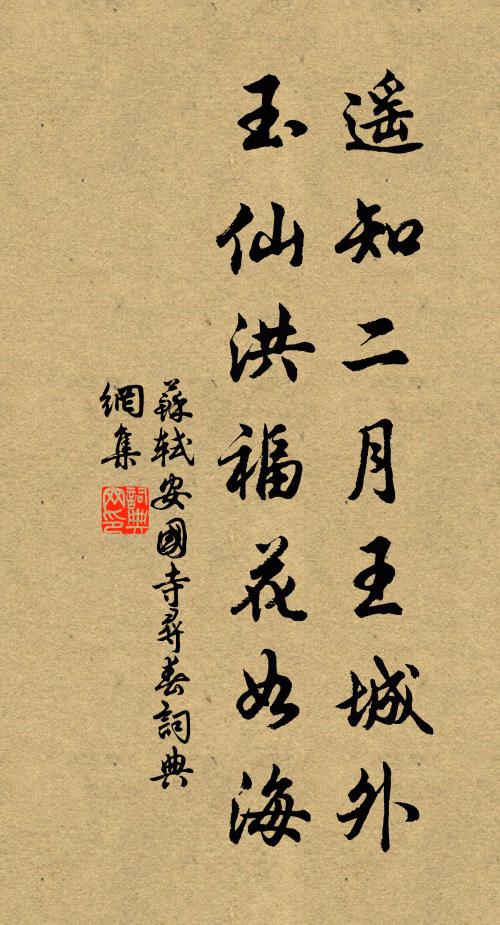 遥知二月王城外
玉仙洪福花如海
蘇軾安國寺尋春詞典
網集
詞典
网印